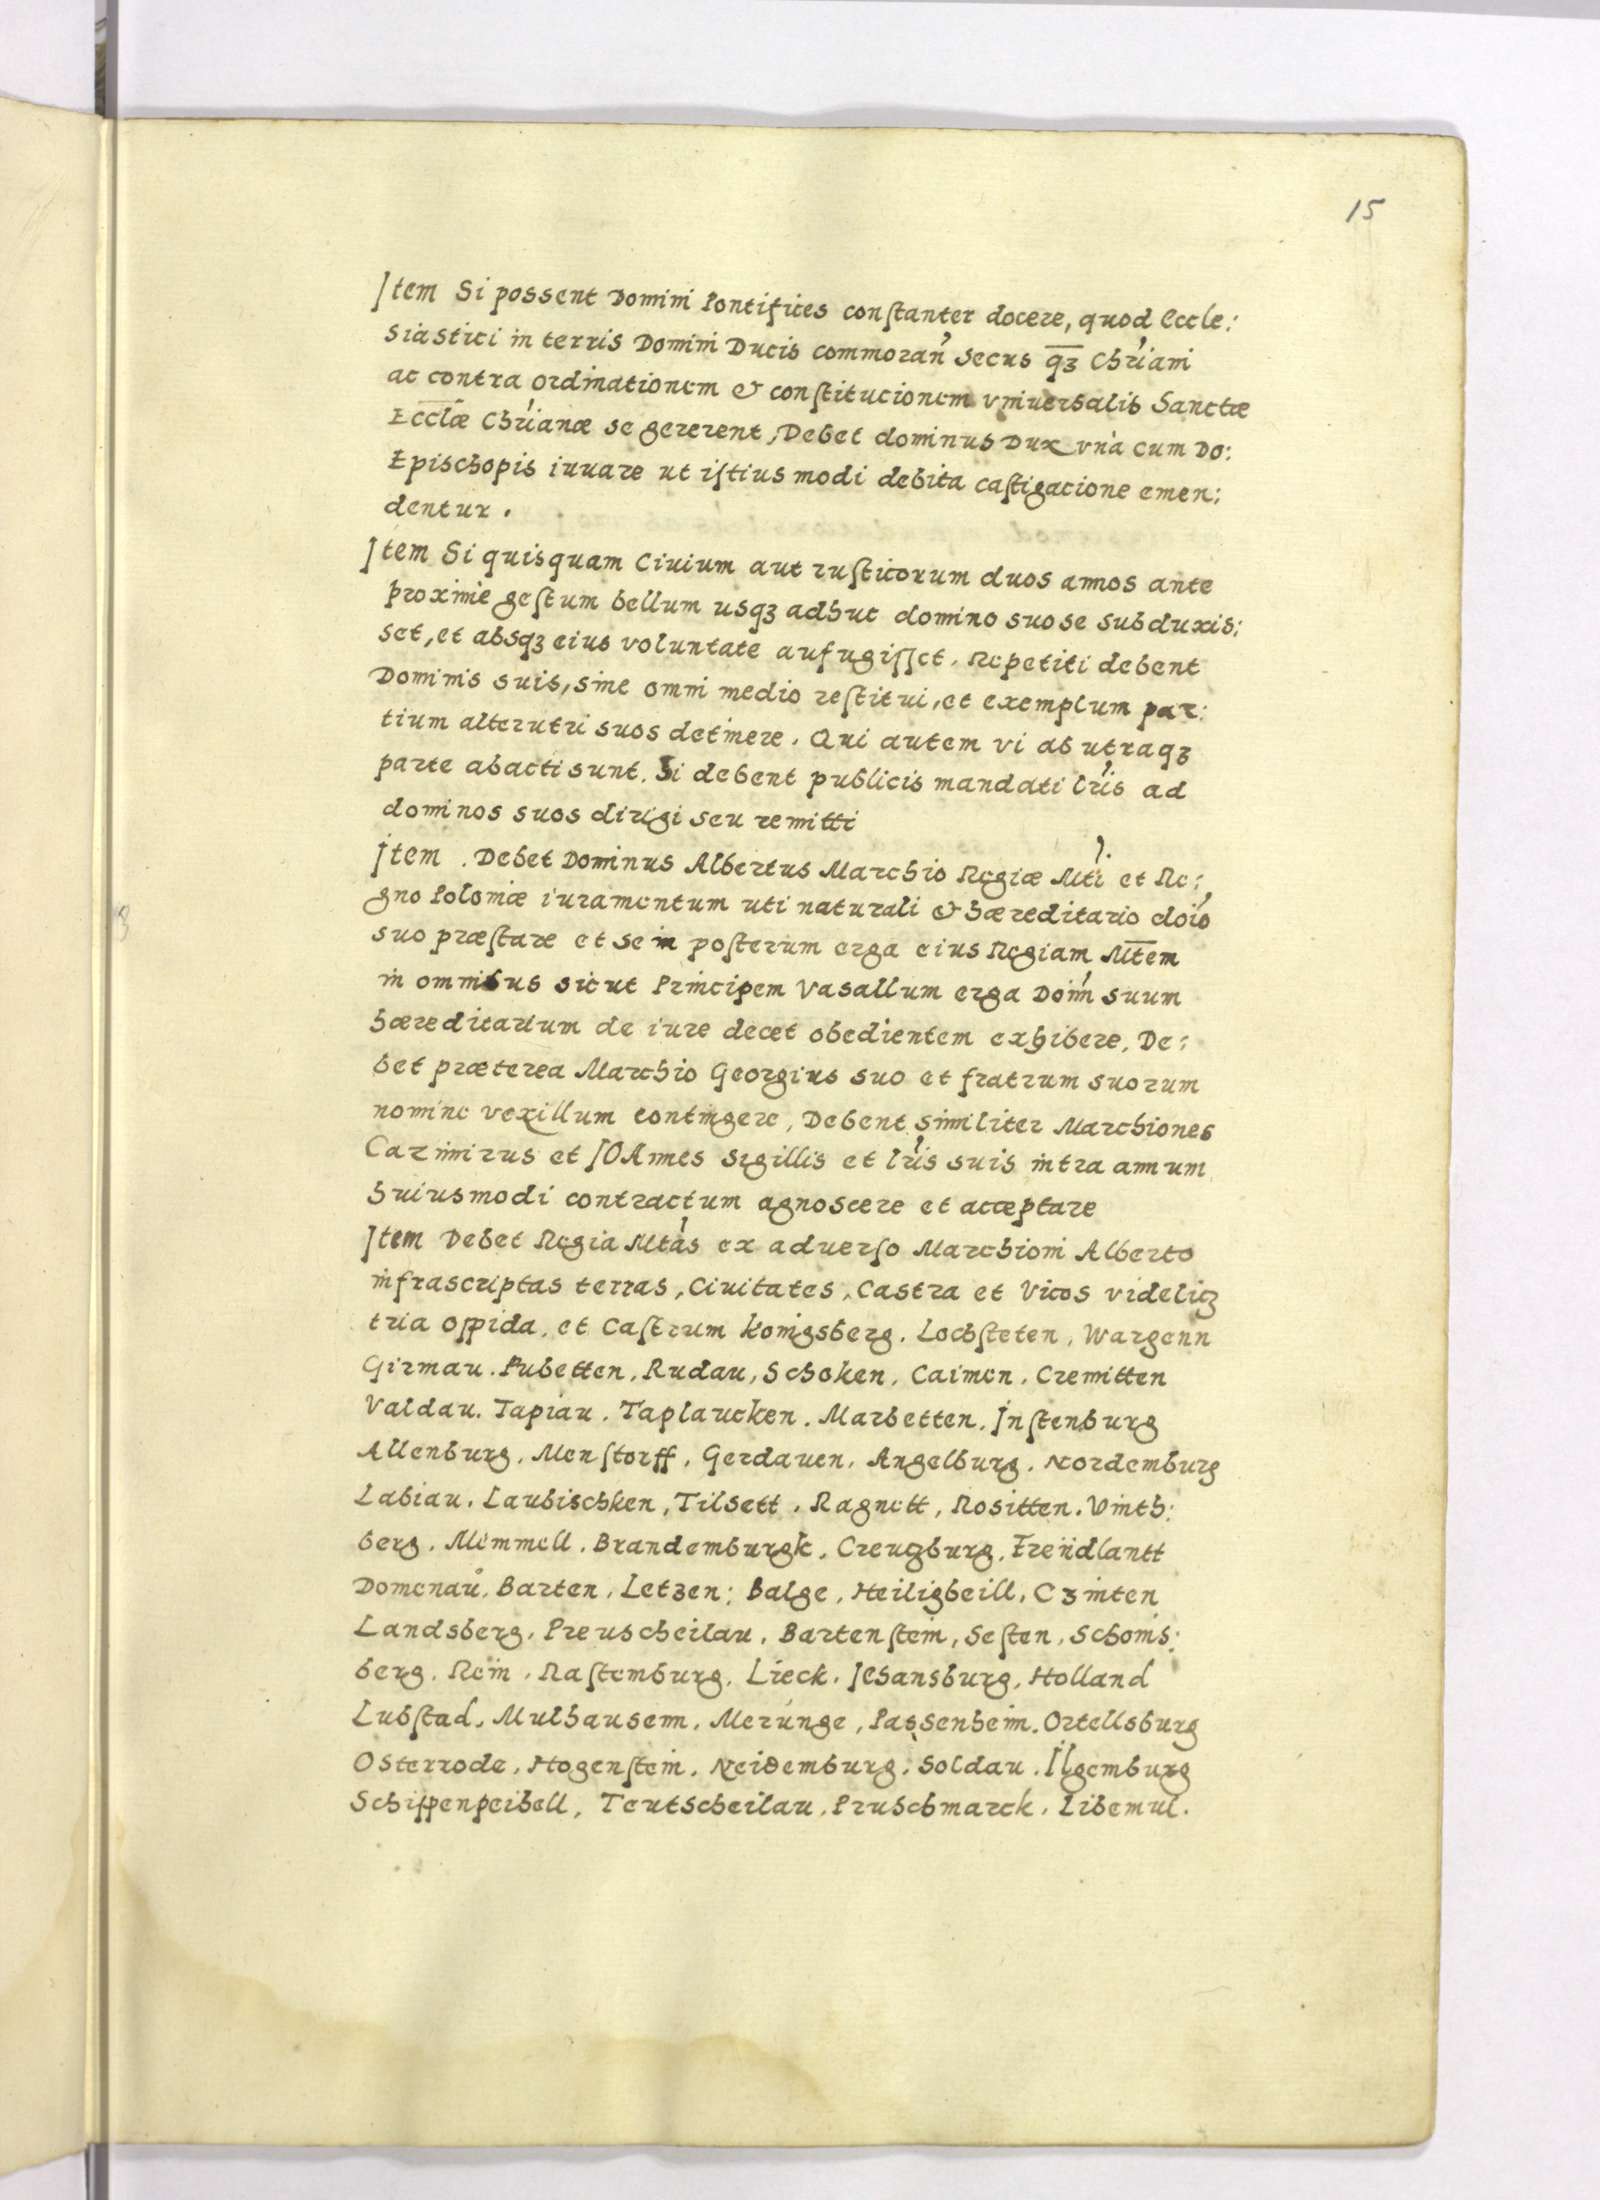 15
Item Si possent Domini Pontifices conſtanter docere, quod Eccle:
siastici in terris Domini Ducis commoran̄ secus qȝ Chr̄iani
ac contra ordinationem & conſtitucionem vniuersalis Sanctæ
Eccl̄æ Chr̄ianæ se gererent, Debet dominus Dux vnà cum Do:
Epischopis iuuare ut iſtiusmodi debita caſtigacione emen:
dentur.
Item Si quisquam Ciuium aut ruſticorum duos annos ante
proximè geſtum bellum usqȝ adhuc domino suo se subduxis:
set, et absqȝ eius voluntate aufugiſſet, Repetiti debent
Dominis suis, sine omni medio reſtitui, et exemplum par:
tium alterutri suos detinere. Qui autem vi ab utraqȝ
parte abacti sunt. Si debent publicis mandati lr̄is ad
dominos suos dirigi seu remitti
Item. Debet Dominus Albertus Marchio Regiæ Mti et Re:
gno Poloniæ iuramentum uti naturali & hæreditario doīo
suo præſtare et se in poſterum erga eius Regiam Mt̄em
in omnibus sicut Principem Vasallum erga Doīn suum
hæreditarium de iure decet obedientem exhibere. De:
bet præterea Marchio Georgius suo et fratrum suorum
nomine vexillum contingere, Debent similiter Marchiones
Cazimirus et IOAnnes sigillis et lr̄is suis intra annum
huiusmodi contractum agnoscere et acceptare
Item Debet Regia Mtas ex aduerſo Marchioni Alberto
infrascriptas terras, Ciuitates, Castra et Vicos videlicȝ
tria oppida, et Caſtrum konigsberg. Lochſteten, Wargenn
Girmau. Pubetten, Rudau, Schoken, Caimen, Cremitten
Valdau. Tapiau. Taplaucken. Marbetten. Inſtenburg
Allenburg, Menſtorff, Gerdauen, Angelburg. Nordemburg
Labiau. Laubischken, Tilsett. Ragnett, Rositten. Vinth:
berg, Memmell. Brandemburgk, Creuȝburg, Freündlantt
Domenaŭ, Barten, Letȝen: Balge, Heiligbeill, Cȝinten
Landsberg, Preuscheilau, Bartenſtein, Seſten, Schoins:
berg, Rein, Raſtemburg, Lieck. Iohansburg, Holland
Lubſtad, Mulhausenn, Merunge, Passenheim. Ortellsburg
Osterrode, Hogenſtein, Neidemburg, Soldau. Ilgemburg
Schippenpeihell, Teutscheilau, Pruschmarck, Libemul.